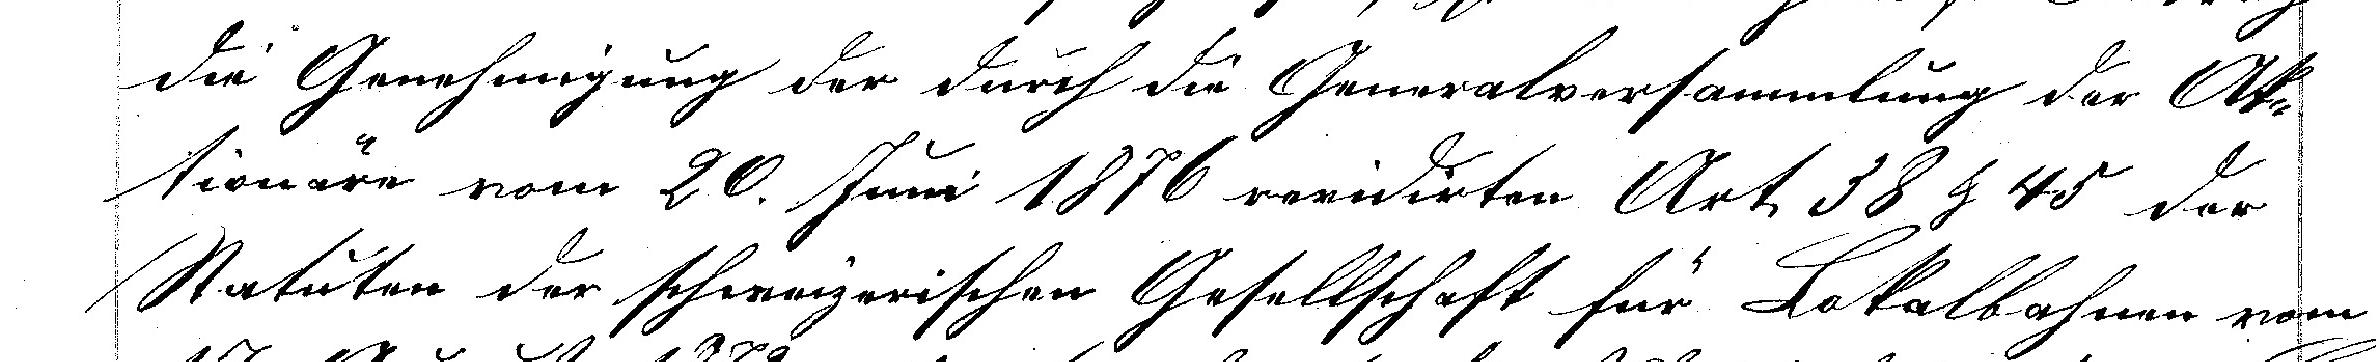 die Genehmigung der durch die Generalversammlung der Ak-
tionäre vom 20. Juni 1876 revidirten Art. 38 & 45 der
Statuten der schweizerischen Gesellschaft für Lokalbahnen vom